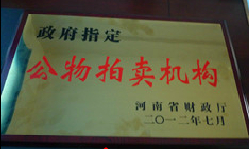 政府指定
公物拍卖机构
河南省财政厅
二〇一二年七月